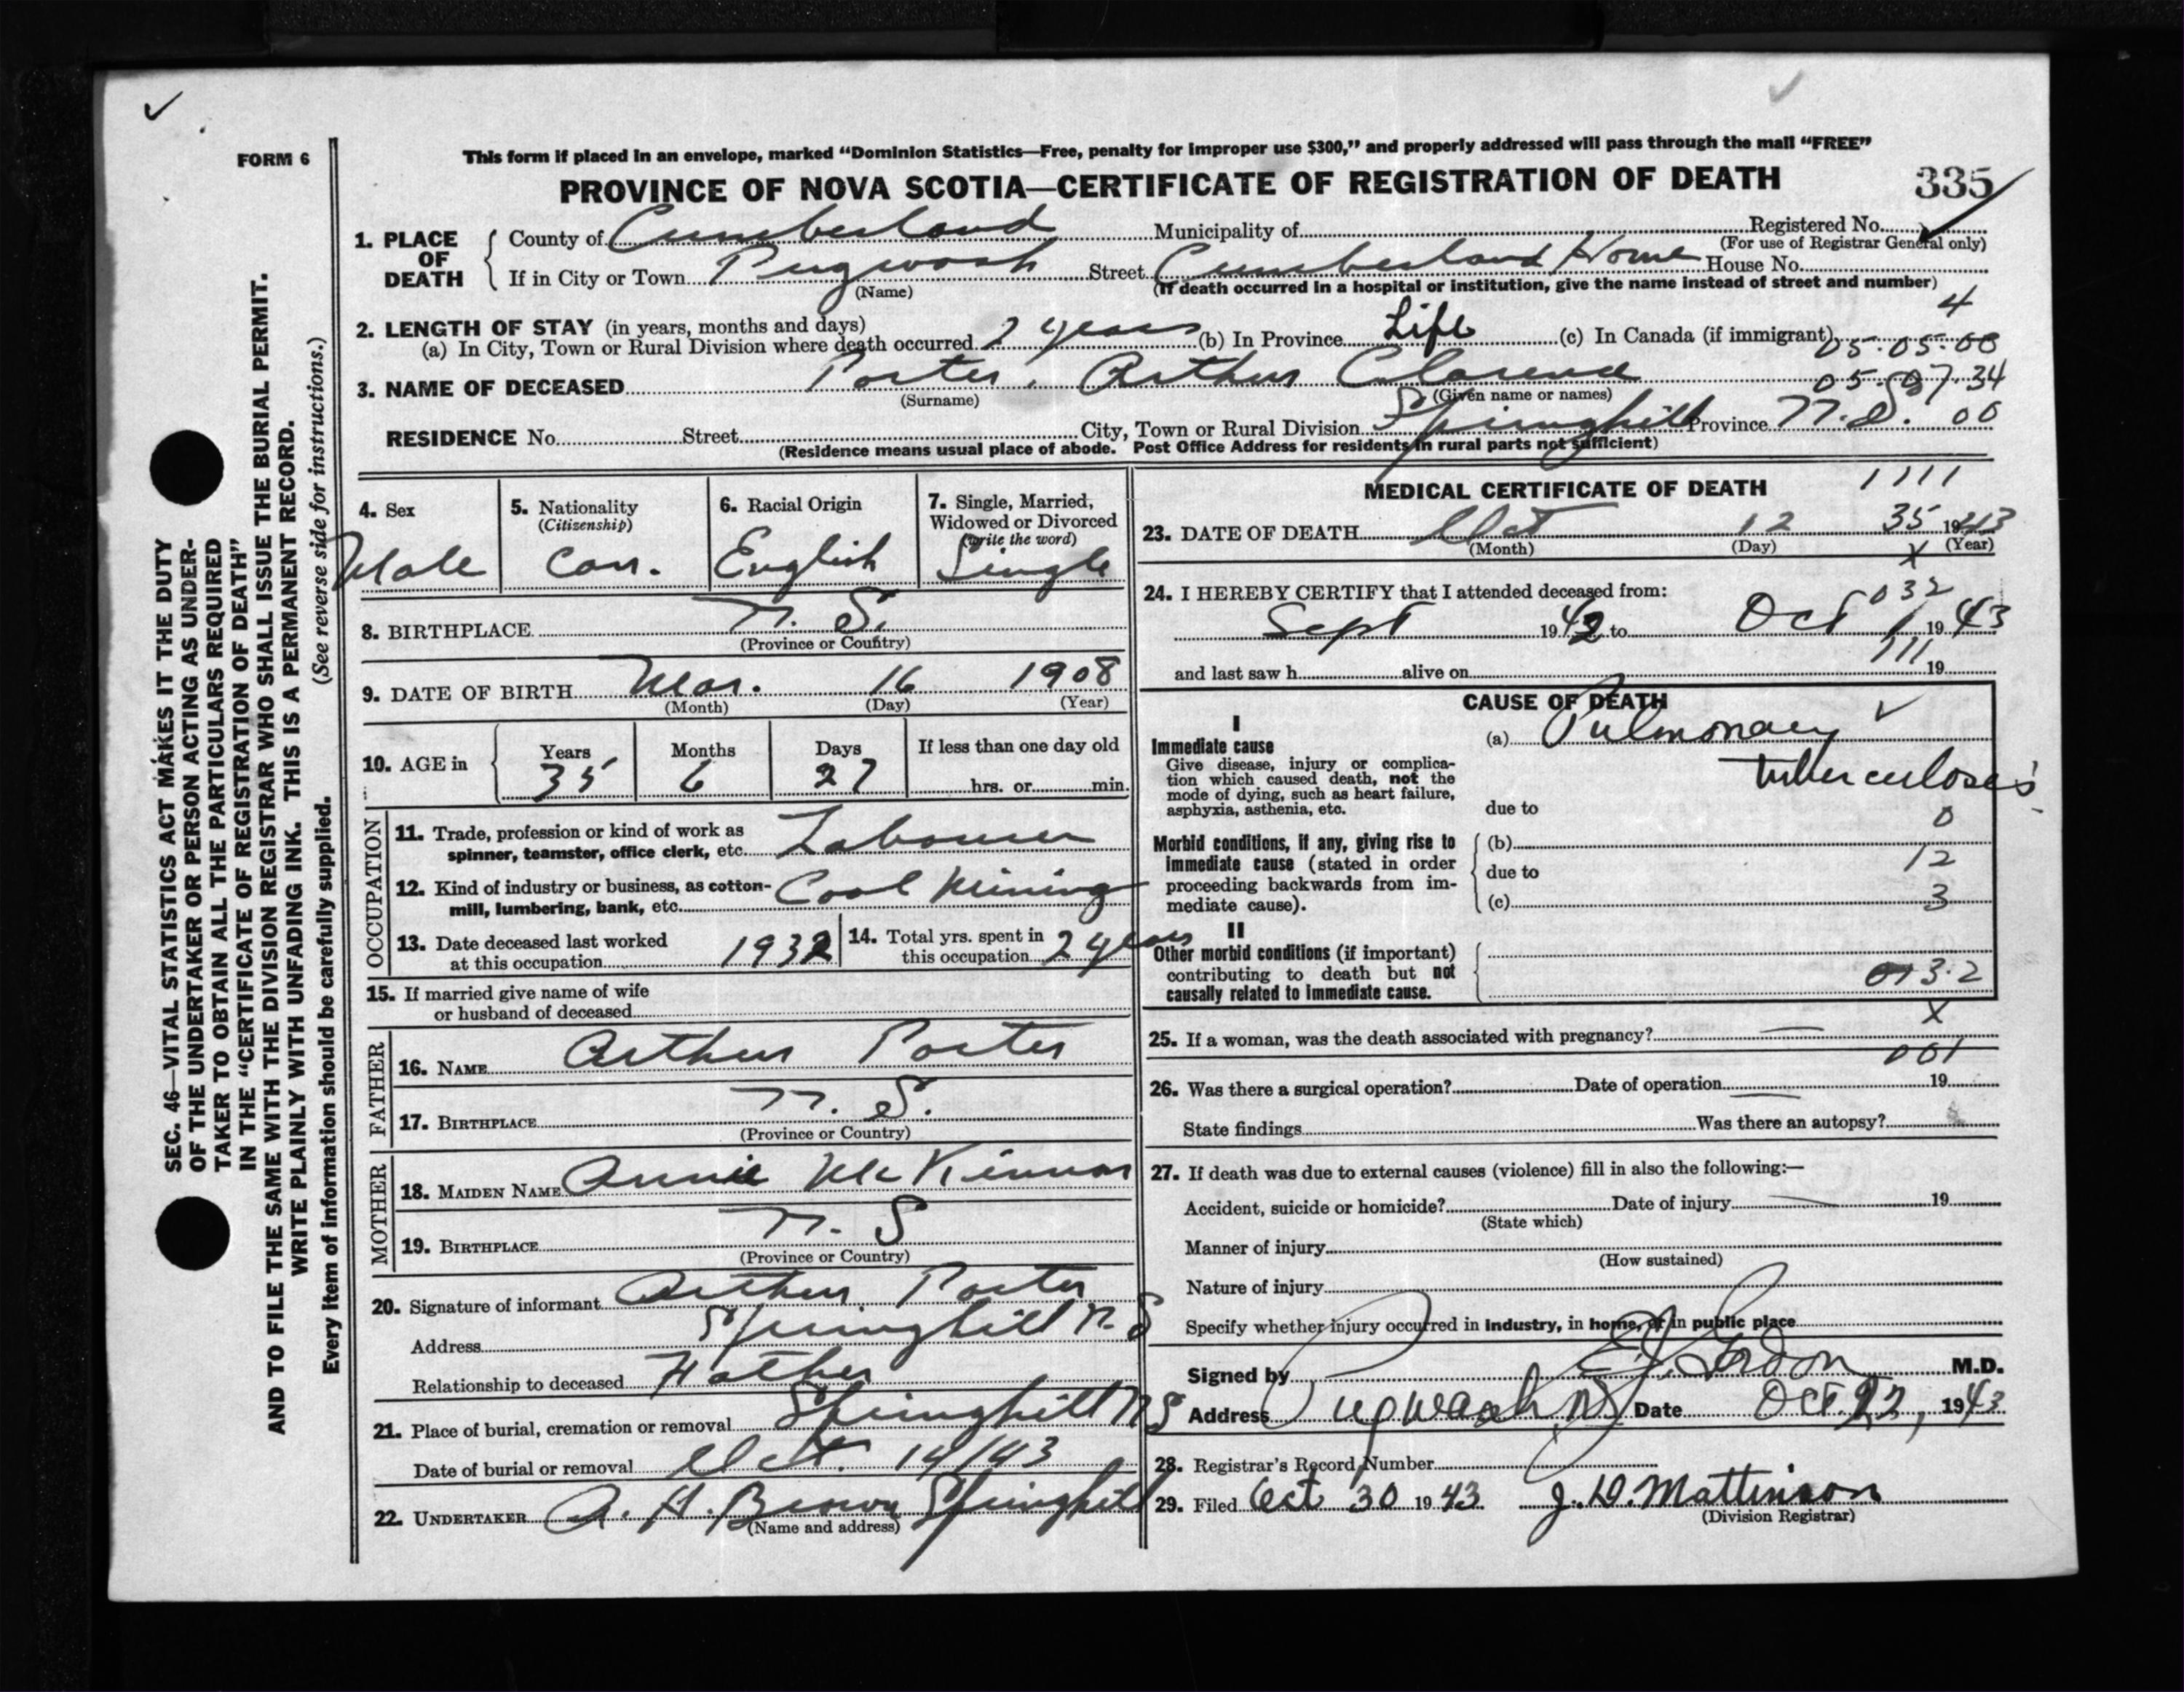 FORM 6
This form if placed in an envelope, marked “Dominion Statistics—Free, penalty for improper use $300,” and properly addressed will pass through the mail “FREE”
PROVINCE OF NOVA SCOTIA—CERTIFICATE OF REGISTRATION OF DEATH 335
1. PLACE OF DEATH { County of Cumberland Municipality of Registered No.
(For use of Registrar General only)
If in City or Town Pugwash Street Cumberland Home House No.
(Name) (If death occurred in a hospital or institution, give the name instead of street and number)
4
2. LENGTH OF STAY (in years, months and days)
(a) In City, Town or Rural Division where death occurred 2 years (b) In Province Life (c) In Canada (if immigrant)
05·05·08
3. NAME OF DECEASED Porter, Arthur Clarence 05·07·34
(Surname) (Given name or names)
RESIDENCE No. Street City, Town or Rural Division Springhill Province N.S. 00
(Residence means usual place of abode. Post Office Address for residents in rural parts not sufficient)
4. Sex Male
5. Nationality (Citizenship) Can.
6. Racial Origin English
7. Single, Married, Widowed or Divorced (write the word) Single
8. BIRTHPLACE N. S.
(Province or Country)
9. DATE OF BIRTH Mar. 16 1908
(Month) (Day) (Year)
10. AGE in { Years 35 Months 6 Days 27 If less than one day old
hrs. or min.
OCCUPATION
11. Trade, profession or kind of work as
spinner, teamster, office clerk, etc. Labourer
12. Kind of industry or business, as cotton-
mill, lumbering, bank, etc. Coal Mining
13. Date deceased last worked
at this occupation 1932
14. Total yrs. spent in
this occupation 2 years
15. If married give name of wife
or husband of deceased
FATHER
16. NAME Arthur Porter
17. BIRTHPLACE N. S.
(Province or Country)
MOTHER
18. MAIDEN NAME Annie McKinnon
19. BIRTHPLACE N. S
(Province or Country)
20. Signature of informant Arthur Porter
Address Springhill N. S
Relationship to deceased Father
21. Place of burial, cremation or removal Springhill N S
Date of burial or removal Oct. 14/43
22. UNDERTAKER A. H. Brown Springhill
(Name and address)
MEDICAL CERTIFICATE OF DEATH 1111
23. DATE OF DEATH Oct 12 35 1943
(Month) (Day) (Year)
X
24. I HEREBY CERTIFY that I attended deceased from:
032
Sept 1942 to Oct 1 1943
111
and last saw h alive on 19
CAUSE OF DEATH
I
Immediate cause
Give disease, injury or complica-
tion which caused death, not the
mode of dying, such as heart failure,
asphyxia, asthenia, etc.
(a) Pulmonary
tuberculosis
due to
0
Morbid conditions, if any, giving rise to
immediate cause (stated in order
proceeding backwards from im-
mediate cause).
(b)
12
due to
(c) 3
II
Other morbid conditions (if important)
contributing to death but not
causally related to immediate cause.
X
25. If a woman, was the death associated with pregnancy? —
001
26. Was there a surgical operation? Date of operation 19
State findings Was there an autopsy?
27. If death was due to external causes (violence) fill in also the following:—
Accident, suicide or homicide? Date of injury 19
(State which)
Manner of injury
(How sustained)
Nature of injury
Specify whether injury occurred in industry, in home, or in public place
Signed by Gordon M.D.
Address Pugwash NS Date Oct. 1943
28. Registrar's Record Number
29. Filed Oct 30 1943 J. D. Mattinson
(Division Registrar)
SEC. 46—VITAL STATISTICS ACT MAKES IT THE DUTY
OF THE UNDERTAKER OR PERSON ACTING AS UNDER-
TAKER TO OBTAIN ALL THE PARTICULARS REQUIRED
IN THE “CERTIFICATE OF REGISTRATION OF DEATH”
AND TO FILE THE SAME WITH THE DIVISION REGISTRAR WHO SHALL ISSUE THE BURIAL PERMIT.
WRITE PLAINLY WITH UNFADING INK. THIS IS A PERMANENT RECORD.
Every item of information should be carefully supplied. (See reverse side for instructions.)